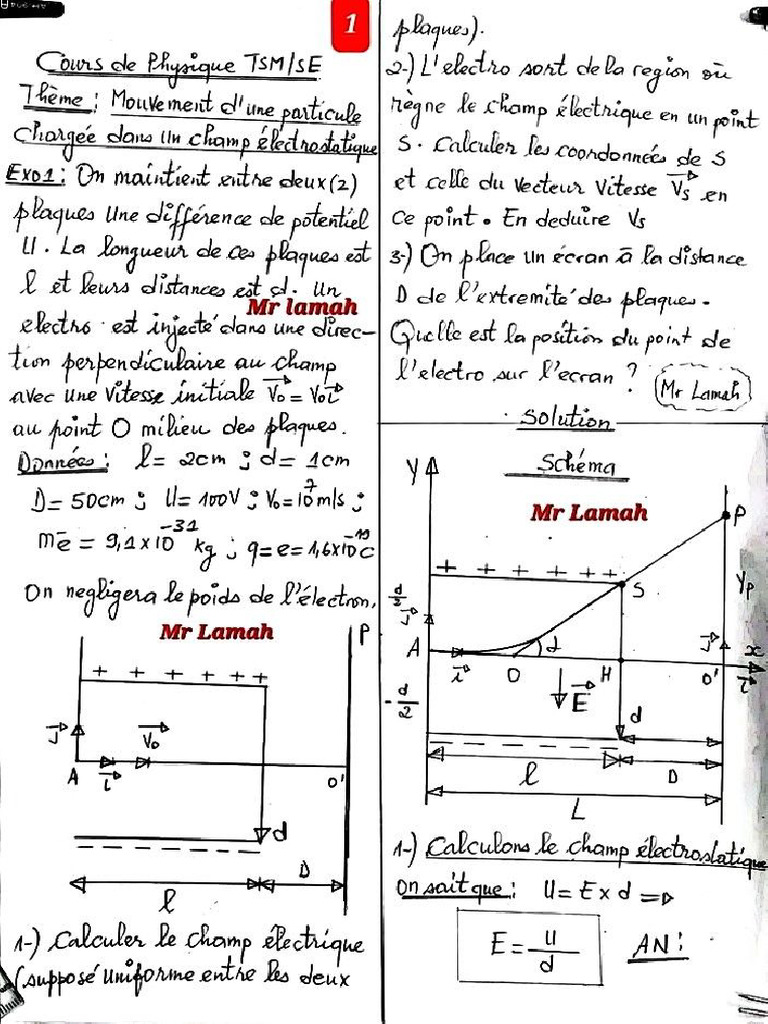 1
Cours de Physique TSM/SE
Thème : Mouvement d'une particule
chargée dans un champ électrostatique
Exo1 : On maintient entre deux (2)
plaques une différence de potentiel
U. La longueur de ces plaques est
l et leurs distances est d. Un
Mr lamah
electro est injecté dans une direc-
tion perpendiculaire au champ
avec une vitesse initiale V₀ = V₀i
au point O milieu des plaques.
Données : l = 2cm ; d = 1cm
D = 50cm ; U = 100V ; V₀ = 10⁷m/s ;
mē = 9,1×10⁻³¹ kg ; q = e = 1,6×10⁻¹⁹C
On negligera le poids de l'électron.
Mr Lamah
P
+ + + + + +
J
V₀
A
i
O'
d
D
l
1-) Calculer le champ électrique
(supposé uniforme entre les deux
plaques).
2-) L'electro sort de la region où
règne le champ électrique en un point
S. Calculer les coordonnées de S
et celle du vecteur vitesse Vs en
ce point. En deduire Vs
3-) On place un écran à la distance
D de l'extremité des plaques.
Quelle est la position du point de
l'electro sur l'ecran ?
Mr Lamah
Solution
Schéma
Y
Mr Lamah
P
+ + + + + +
S
d/2
J
Yp
A
i
O
α
H
J
O'
x
i
E
-d/2
d
l
D
L
1-) Calculons le champ électrostatique
On sait que : U = E x d =>
E = U/d
AN :